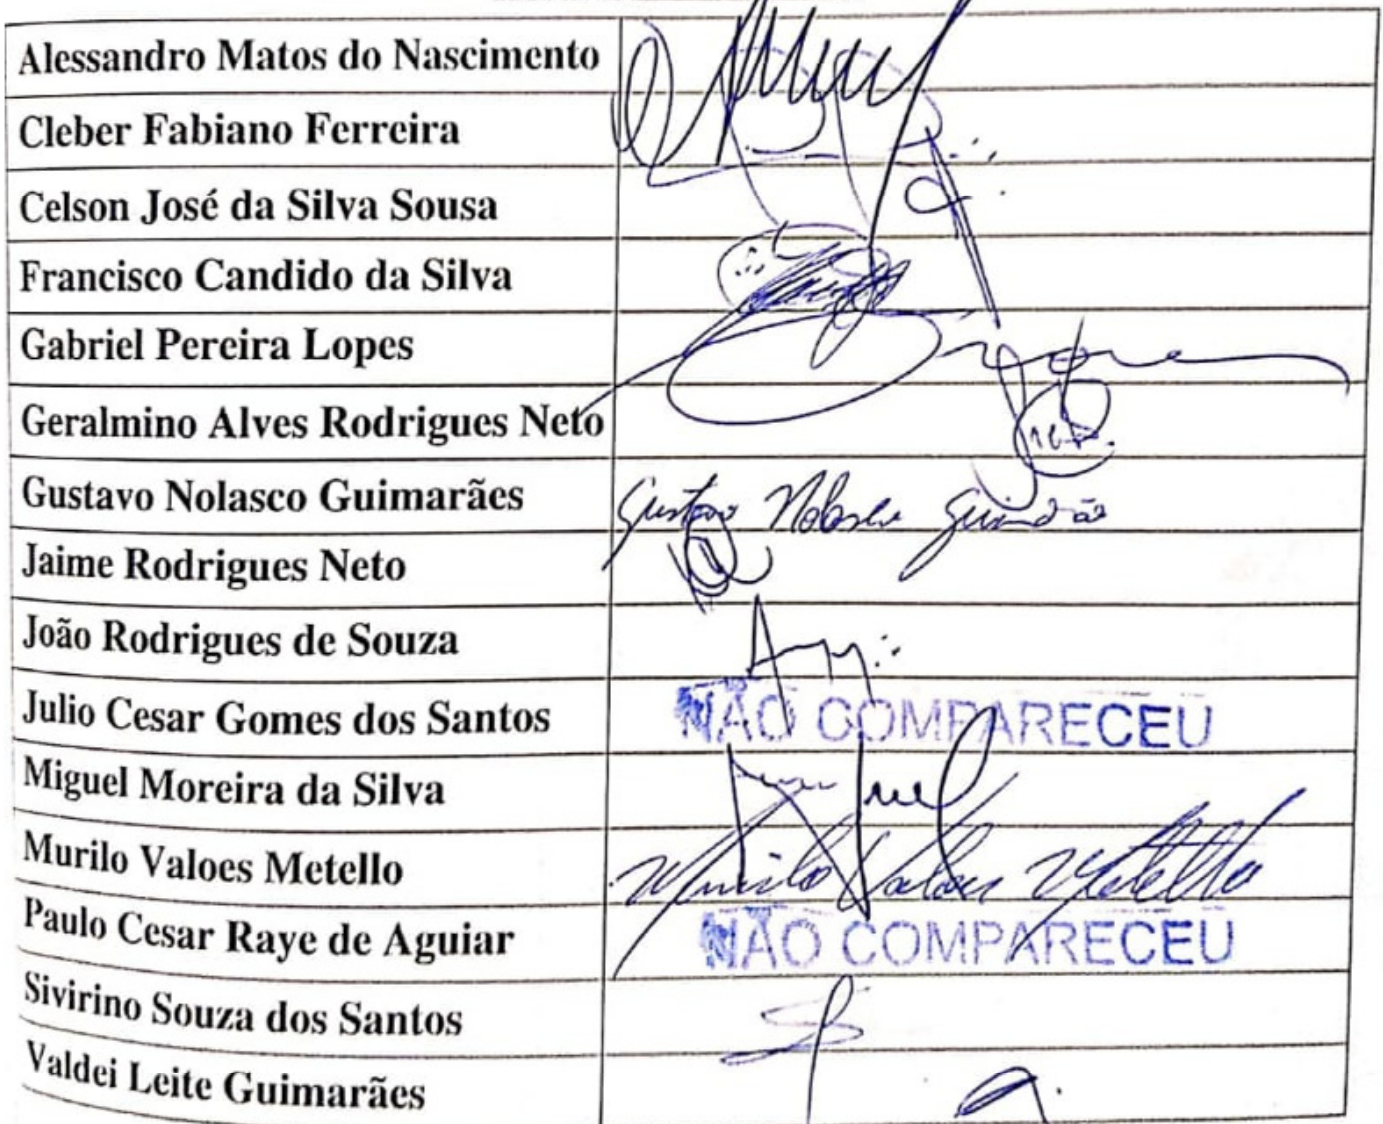 Alessandro Matos do Nascimento
Cleber Fabiano Ferreira
Celson José da Silva Sousa
Francisco Candido da Silva
Gabriel Pereira Lopes
Geralmino Alves Rodrigues Neto
Gustavo Nolasco Guimarães Gustavo Nolasco Guimarães
Jaime Rodrigues Neto
João Rodrigues de Souza
Julio Cesar Gomes dos Santos NÃO COMPARECEU
Miguel Moreira da Silva
Murilo Valoes Metello Murilo Valoes Metello
Paulo Cesar Raye de Aguiar NÃO COMPARECEU
Sivirino Souza dos Santos
Valdei Leite Guimarães